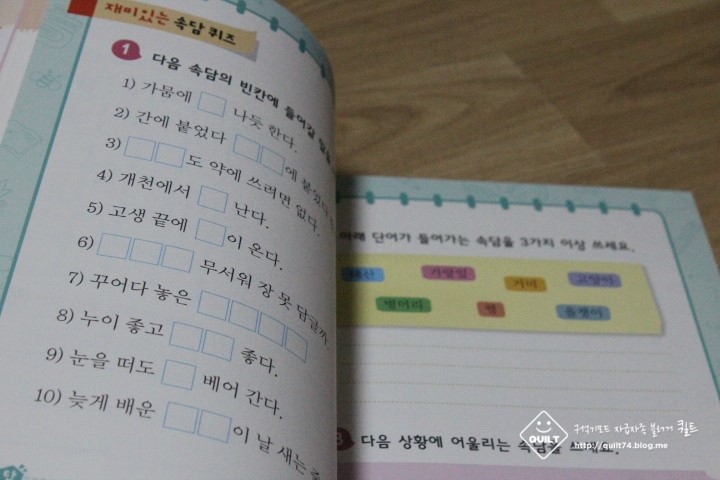 재미있는 속담 퀴즈
1 다음 속담의 빈칸에 들어갈 말을
1) 가뭄에 □ 나듯 한다.
2) 간에 붙었다 □□에 붙었다
3) □□도 약에 쓰려면 없다.
4) 개천에서 □ 난다.
5) 고생 끝에 □이 온다.
6) □□□ 무서워 장 못 담글까.
7) 꾸어다 놓은 □□□□
8) 누이 좋고 □□ 좋다.
9) 눈을 떠도 □ 베어 간다.
10) 늦게 배운 □□이 날 새는 줄
아래 단어가 들어가는 속담을 3가지 이상 쓰세요.
가랑잎 거미 고양이
벙어리 뱀 올챙이
3 다음 상황에 어울리는 속담을 쓰세요.
QUILT
http://quilt74.blog.me